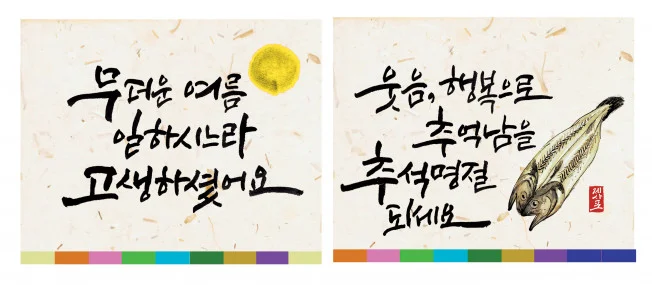 무더운 여름
일하시느라
고생하셨어요
웃음, 행복으로
추억남을
추석명절
되세요